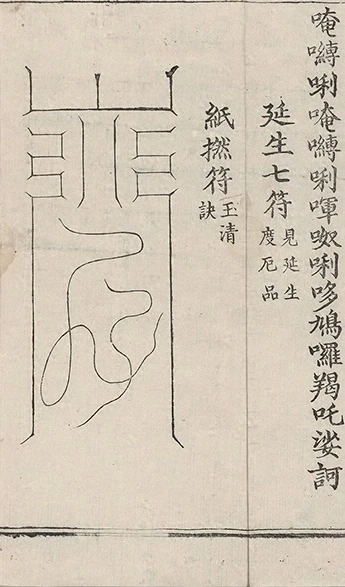 唵嚩唎唵嚩唎喗呶唎哆鳩囉羯吒娑訶
延生七符
見延生
度厄品
紙撚符
玉清
訣